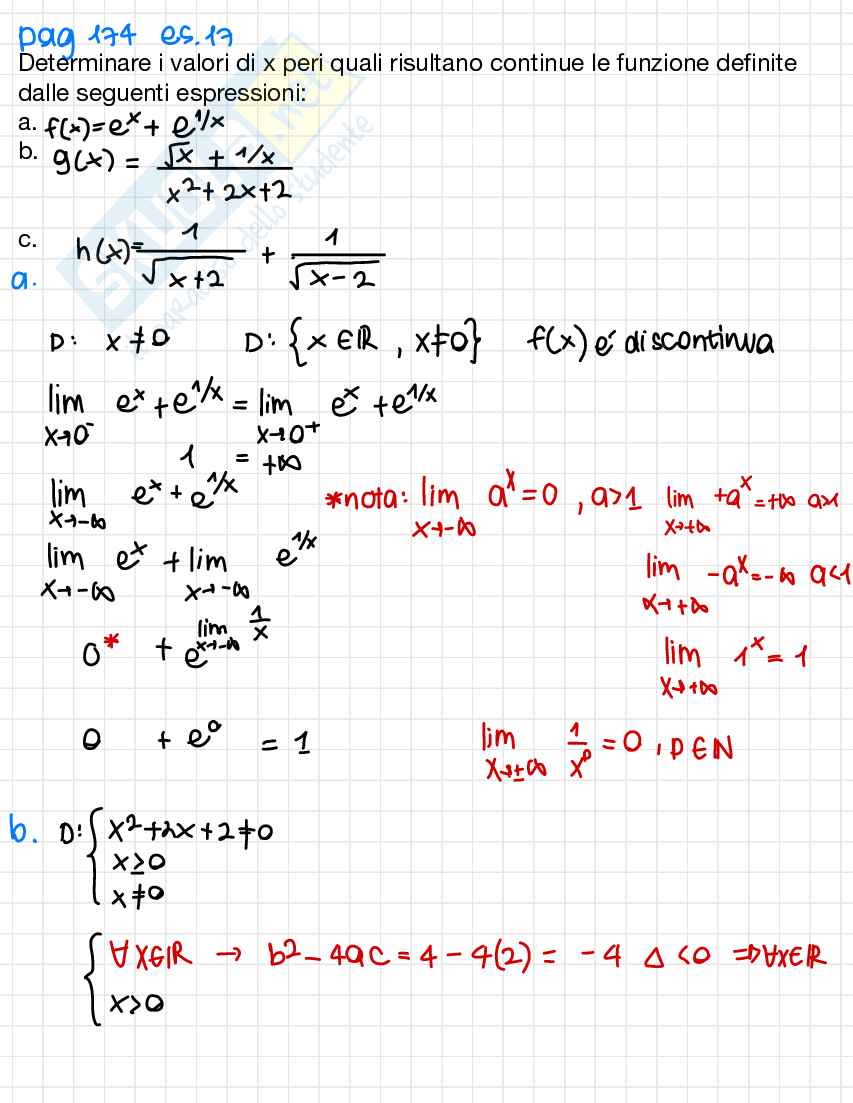 pag 174 es.17
Determinare i valori di x peri quali risultano continue le funzione definite
dalle seguenti espressioni:
a. f(x)=e^x + e^{1/x}
b. g(x) = (√x + 1/x)/(x²+2x+2)
c. h(x)= 1/√(x+2) + 1/√(x-2)
a.
D: x≠0 D: {x ∈ ℝ , x≠0} f(x) é discontinua
lim x→0⁻ e^x + e^{1/x} = lim x→0⁺ e^x + e^{1/x}
1 = +∞
lim x→-∞ e^x + e^{1/x} *nota: lim x→-∞ a^x = 0 , a>1 lim x→+∞ +a^x = +∞ a>1
lim x→-∞ e^x + lim x→-∞ e^{1/x} lim x→+∞ -a^x = -∞ a<1
0* + e^{lim x→-∞ 1/x} lim x→+∞ 1^x = 1
0 + e^0 = 1 lim x→±∞ 1/x^p = 0 , p ∈ N
b. D: { x²+2x+2≠0
x≥0
x≠0
{ ∀x∈ℝ → b²-4ac = 4-4(2) = -4 Δ<0 ⇒ ∀x∈ℝ
x>0